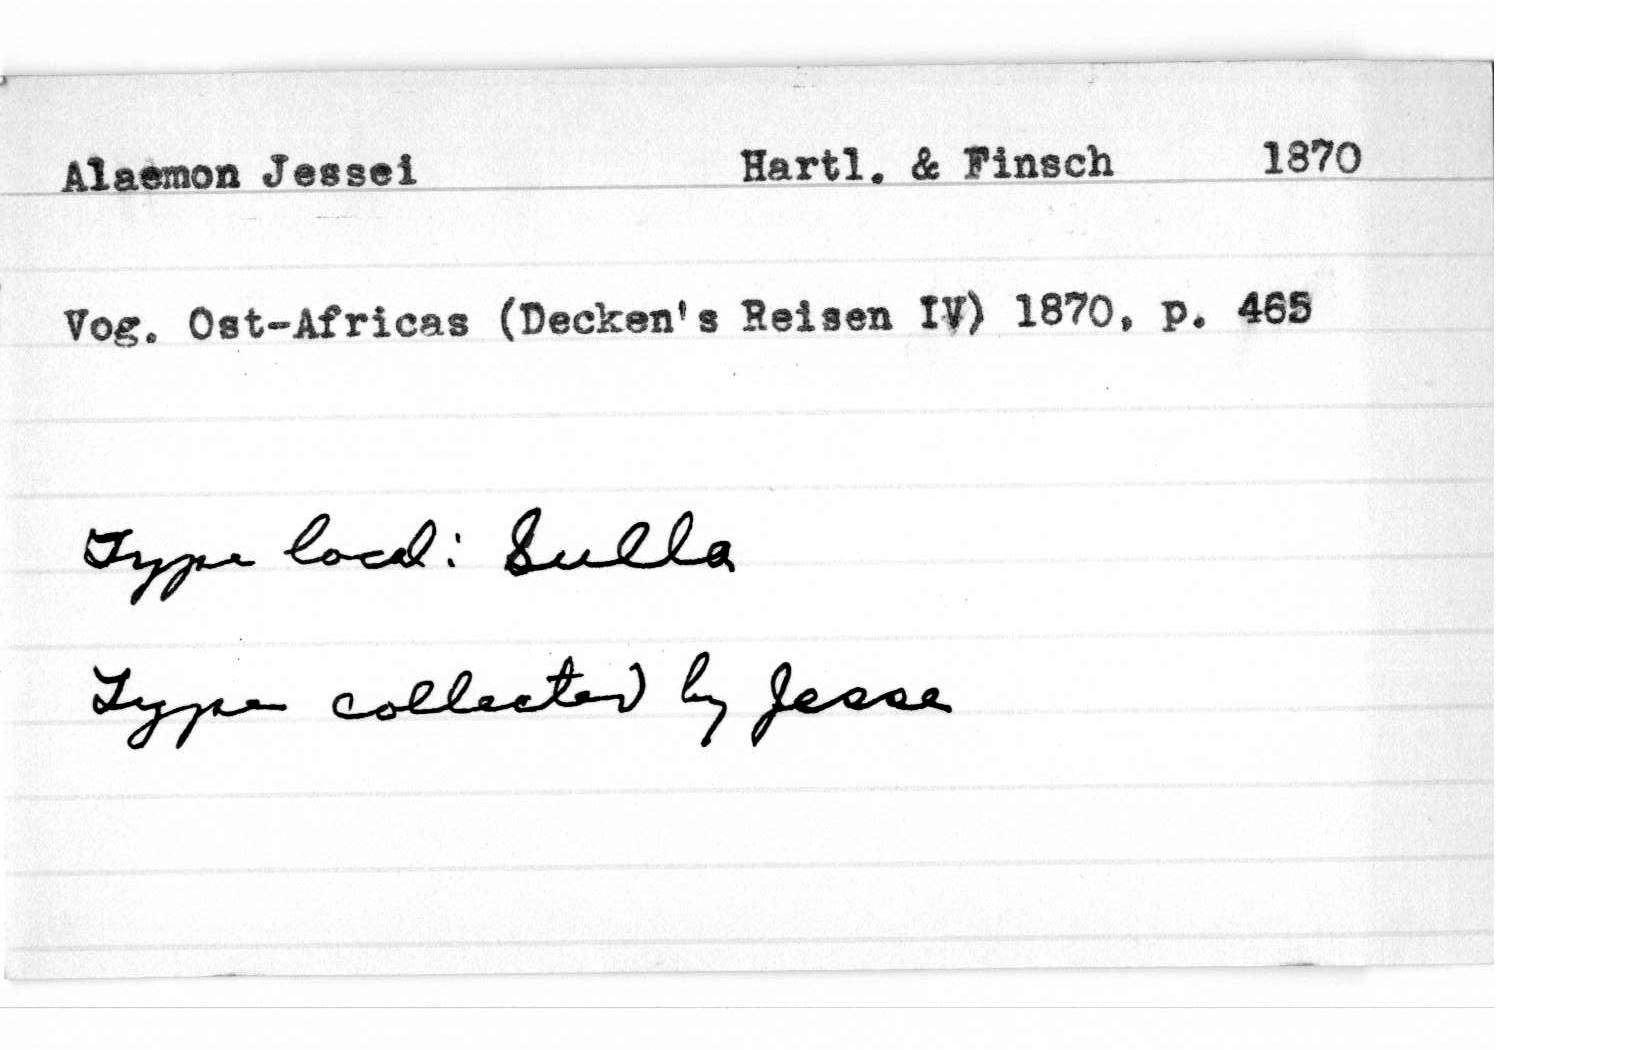 Alaemon Jessei Hartl. & Finsch 1870
Vog. Ost-Africas (Decken's Reisen IV) 1870, p. 465
Type local: Sulla
Type collected by Jesse